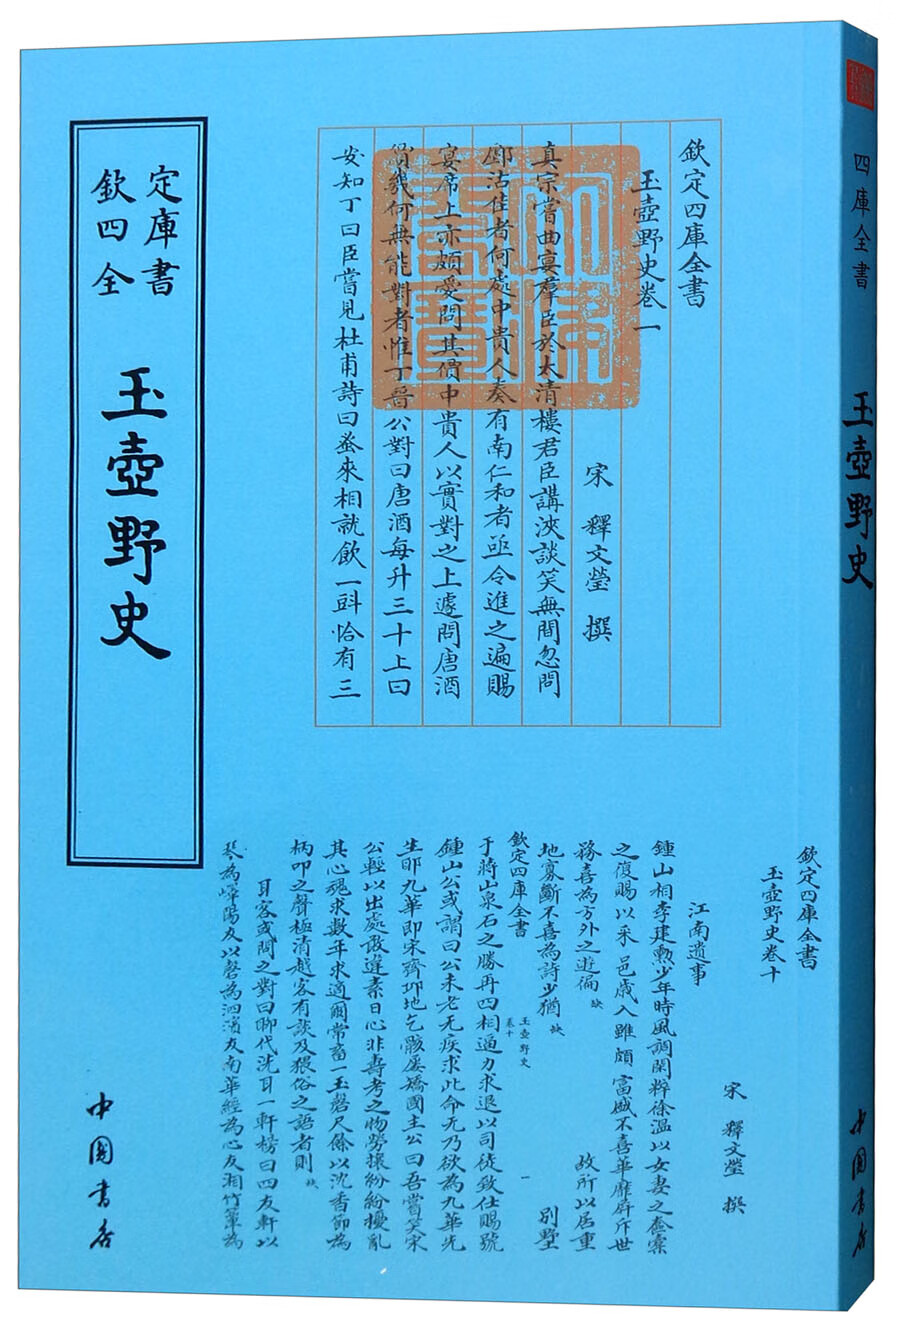 欽定四庫全書
玉壺野史
中國書店
欽定四庫全書
玉壺野史卷一
宋 釋文瑩 撰
真宗嘗曲宴羣臣於太清樓君臣講浹談笑無間忽問
鄽沽佳者何處中貴人奏有南仁和者亟令進之遍賜
宴席上亦頗愛問其價中貴人以實對之上遽問唐酒
價幾何無能對者惟丁晉公對曰唐酒每升三十上曰
安知丁曰臣嘗見杜甫詩曰蚤來相就飲一斗恰有三
欽定四庫全書
玉壺野史卷十
宋 釋文瑩 撰
江南遺事
鍾山相李建勲少年時風調閑粹徐溫以女妻之奩橐
之復賜以采邑歲入雖頗富戚不喜華靡屏斥世
務喜為方外之遊偏缺 故所以居重
地寡斷不喜為詩少猶缺 別墅
欽定四庫全書
玉壺野史
卷十
一
于蔣山泉石之勝再四相逼力求退以司徒致仕賜號
鍾山公或謂曰公未老无疾求此命无乃欲為九華先
生耶九華即宋齊邱地乞骸屢矯國主公曰吾嘗笑宋
公輕以出處敢違素日心非壽考之物勞攘紛紛擾亂
其心魂求數年求適爾常畜一玉磬尺餘以沈香節為
柄叩之聲極清越客有談及猥俗之語者則缺
耳客或問之對曰聊代洗耳一軒榜曰四友軒以
琴為嶧陽友以磬為泗濱友南華經為心友湘竹簟為
四庫全書
玉壺野史
中國書店